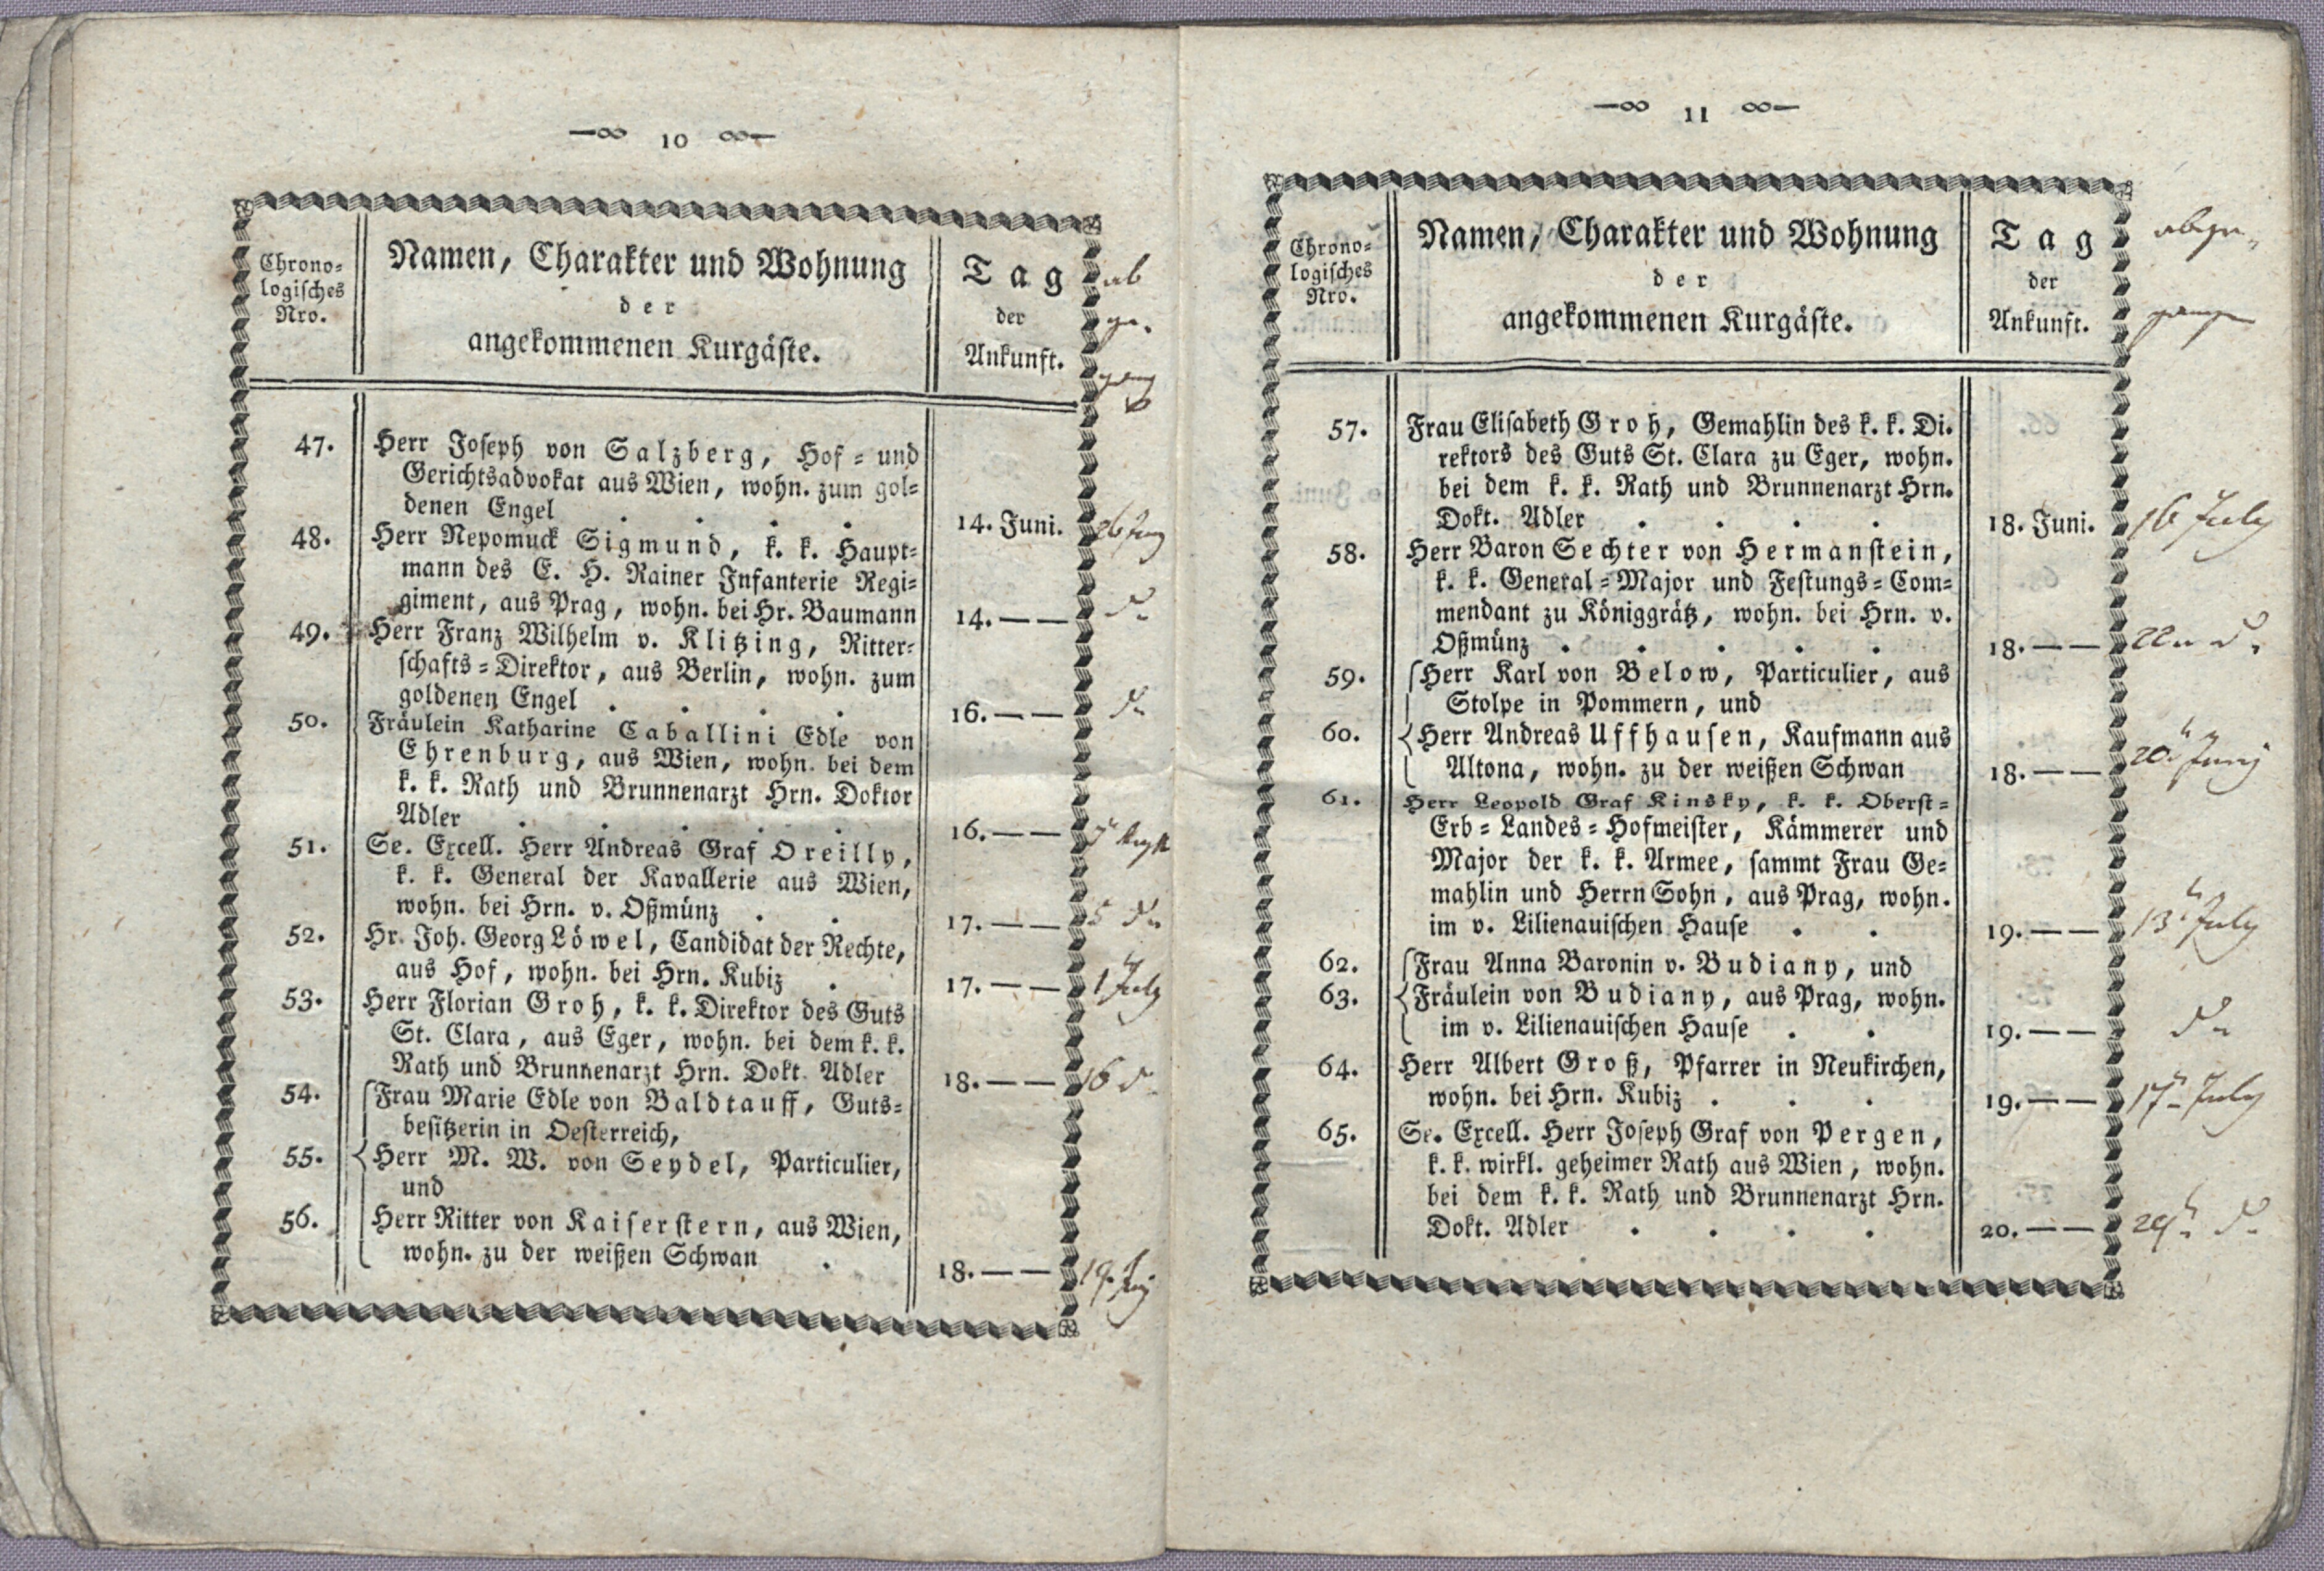 10
Chrono=
logisches
Nro.
Namen, Charakter und Wohnung
der
angekommenen Kurgäste.
Tag
der
Ankunft.
ab
ge-
gang
47. Herr Joseph von Salzberg, Hof= und
Gerichtsadvokat aus Wien, wohn. zum gol=
denen Engel . . . . 14. Juni. 26 Juny
48. Herr Nepomuck Sigmund, k. k. Haupt=
mann des E. H. Rainer Infanterie Regi=
giment, aus Prag, wohn. bei Hr. Baumann 14. — — d
49. Herr Franz Wilhelm v. Klitzing, Ritter=
schafts=Direktor, aus Berlin, wohn. zum
goldenen Engel . . . . 16. — — d
50. Fräulein Katharine Caballini Edle von
Ehrenburg, aus Wien, wohn. bei dem
k. k. Rath und Brunnenarzt Hrn. Doktor
Adler . . . . . 16. — —
51. Se. Excell. Herr Andreas Graf Oreilly,
k. k. General der Kavallerie aus Wien,
wohn. bei Hrn. v. Oßmünz . . 17. — — 5 d
52. Hr. Joh. Georg Löwel, Candidat der Rechte,
aus Hof, wohn. bei Hrn. Kubiz . 17. — — 1 July
53. Herr Florian Groh, k. k. Direktor des Guts
St. Clara, aus Eger, wohn. bei dem k. k.
Rath und Brunnenarzt Hrn. Dokt. Adler 18. — — 16 d
54. Frau Marie Edle von Baldtauff, Guts=
besitzerin in Oesterreich,
55. Herr M. W. von Seydel, Particulier,
und
56. Herr Ritter von Kaiserstern, aus Wien,
wohn. zu der weißen Schwan . 18. — — 19.
11
Chrono=
logisches
Nro.
Namen, Charakter und Wohnung
der
angekommenen Kurgäste.
Tag
der
Ankunft.
abge-
gangen
57. Frau Elisabeth Groh, Gemahlin des k. k. Di.
rektors des Guts St. Clara zu Eger, wohn.
bei dem k. k. Rath und Brunnenarzt Hrn.
Dokt. Adler . . . . 18. Juni. 16 July
58. Herr Baron Sechter von Hermanstein,
k. k. General=Major und Festungs=Com=
mendant zu Königgrätz, wohn. bei Hrn. v.
Oßmünz . . . . . 18. — — 22 d
59. Herr Karl von Below, Particulier, aus
Stolpe in Pommern, und
60. Herr Andreas Uffhausen, Kaufmann aus
Altona, wohn. zu der weißen Schwan 18. — — 20 Juny
61. Herr Leopold Graf Kinsky, k. k. Oberst=
Erb=Landes=Hofmeister, Kämmerer und
Major der k. k. Armee, sammt Frau Ge=
mahlin und Herrn Sohn, aus Prag, wohn.
im v. Lilienauischen Hause . . 19. — — 13 July
62. Frau Anna Baronin v. Budiany, und
63. Fräulein von Budiany, aus Prag, wohn.
im v. Lilienauischen Hause . . 19. — — d
64. Herr Albert Groß, Pfarrer in Neukirchen,
wohn. bei Hrn. Kubiz . . . 19. — — 17 July
65. Se. Excell. Herr Joseph Graf von Pergen,
k. k. wirkl. geheimer Rath aus Wien, wohn.
bei dem k. k. Rath und Brunnenarzt Hrn.
Dokt. Adler . . . . 20. — — 29 d